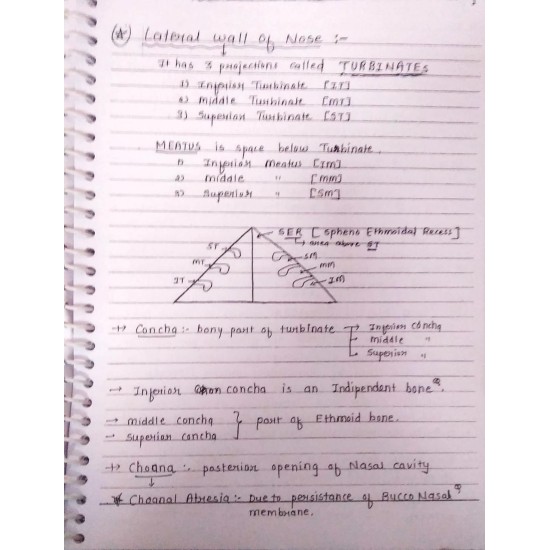 (A) Lateral wall of Nose :-
It has 3 projections called TURBINATEs
1) Inferior Turbinate [IT]
2) Middle Turbinate [MT]
3) Superior Turbinate [ST]
MEATUS is space below Turbinate.
1) Inferior Meatus [IM]
2) Middle " [MM]
3) Superior " [SM]
SER [Spheno Ethmoidal Recess]
area above ST
ST SM
MT MM
IT IM
→ Concha :- bony part of turbinate → Inferior concha
middle "
Superior "
→ Inferior concha is an Indipendent bone Q.
→ middle concha } part of Ethmoid bone.
→ superior concha
→ Choana :- posterior opening of Nasal cavity
* Choanal Atresia :- Due to persistance of Bucco Nasal Q
membrane.